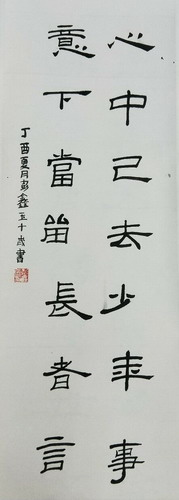 心中已去少年事
意下當留長者言
丁酉夏月彭鑫五十岁書